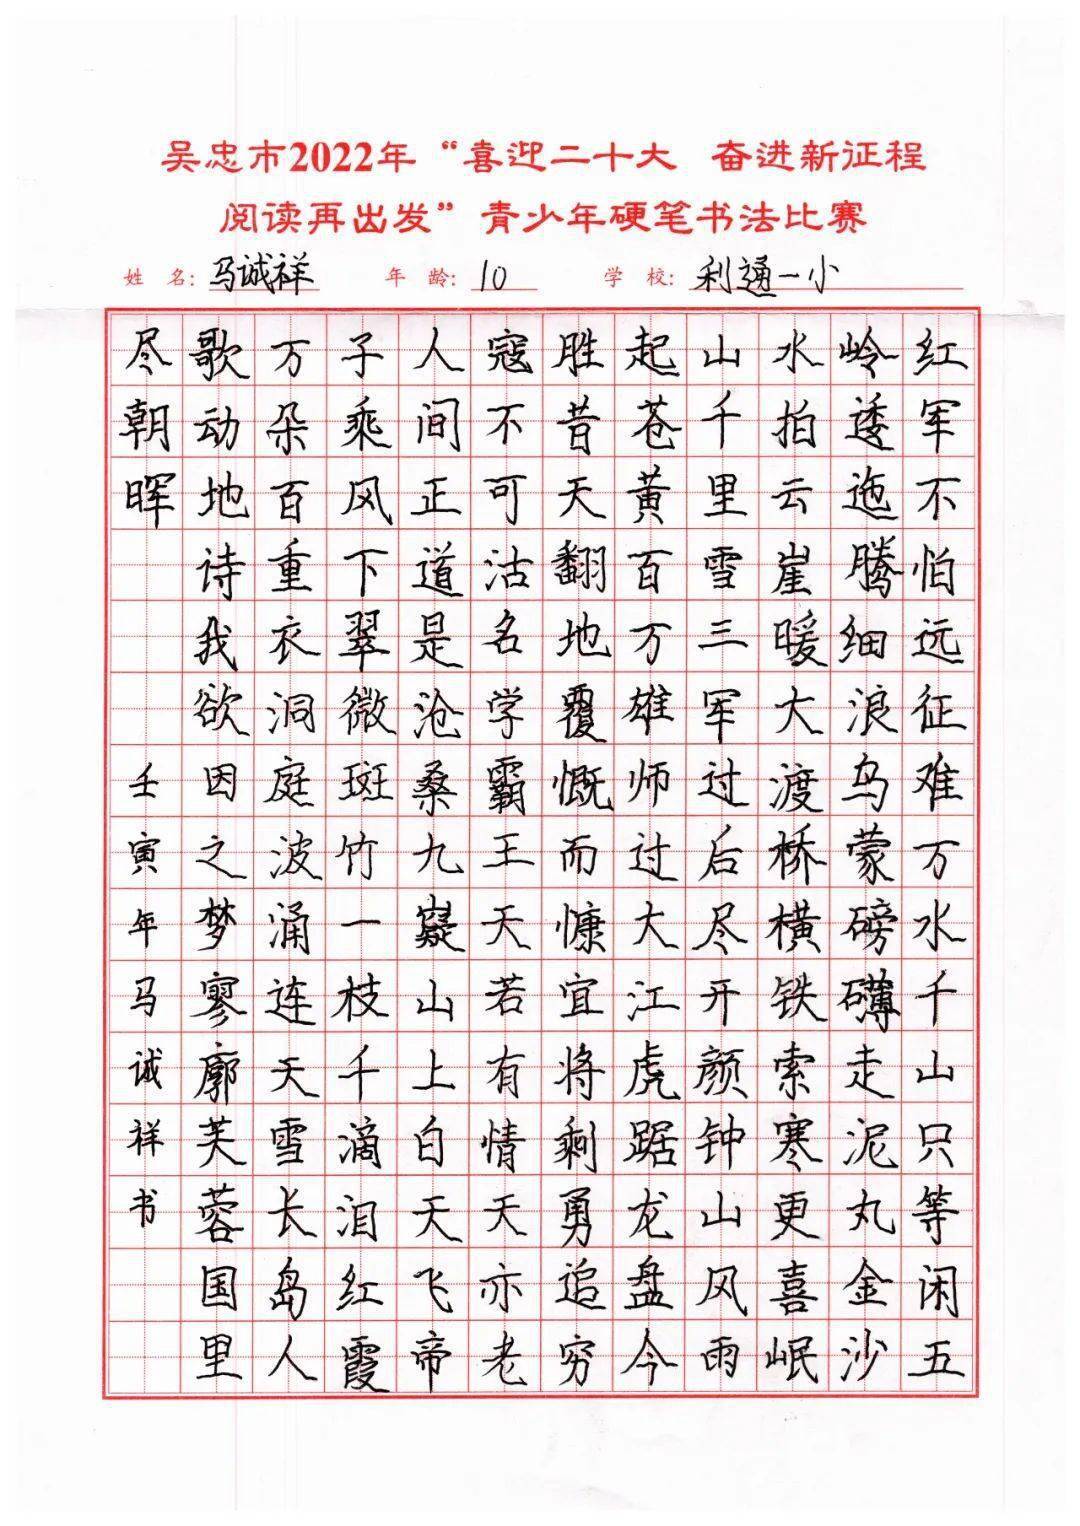 吴忠市2022年“喜迎二十大 奋进新征程
阅读再出发”青少年硬笔书法比赛
姓 名: 马诚祥 年 龄: 10 学 校: 利通一小
红军不怕远征难万水千山只等闲五
岭逶迤腾细浪乌蒙磅礴走泥丸金沙
水拍云崖暖大渡桥横铁索寒更喜岷
山千里雪三军过后尽开颜钟山风雨
起苍黄百万雄师过大江虎踞龙盘今
胜昔天翻地覆慨而慷宜将剩勇追穷
寇不可沽名学霸王天若有情天亦老
人间正道是沧桑九嶷山上白天飞帝
子乘风下翠微斑竹一枝千滴泪红霞
万朵百重衣洞庭波涌连天雪长岛人
歌动地诗我欲因之梦寥廓芙蓉国里
尽朝晖
壬寅年马诚祥书